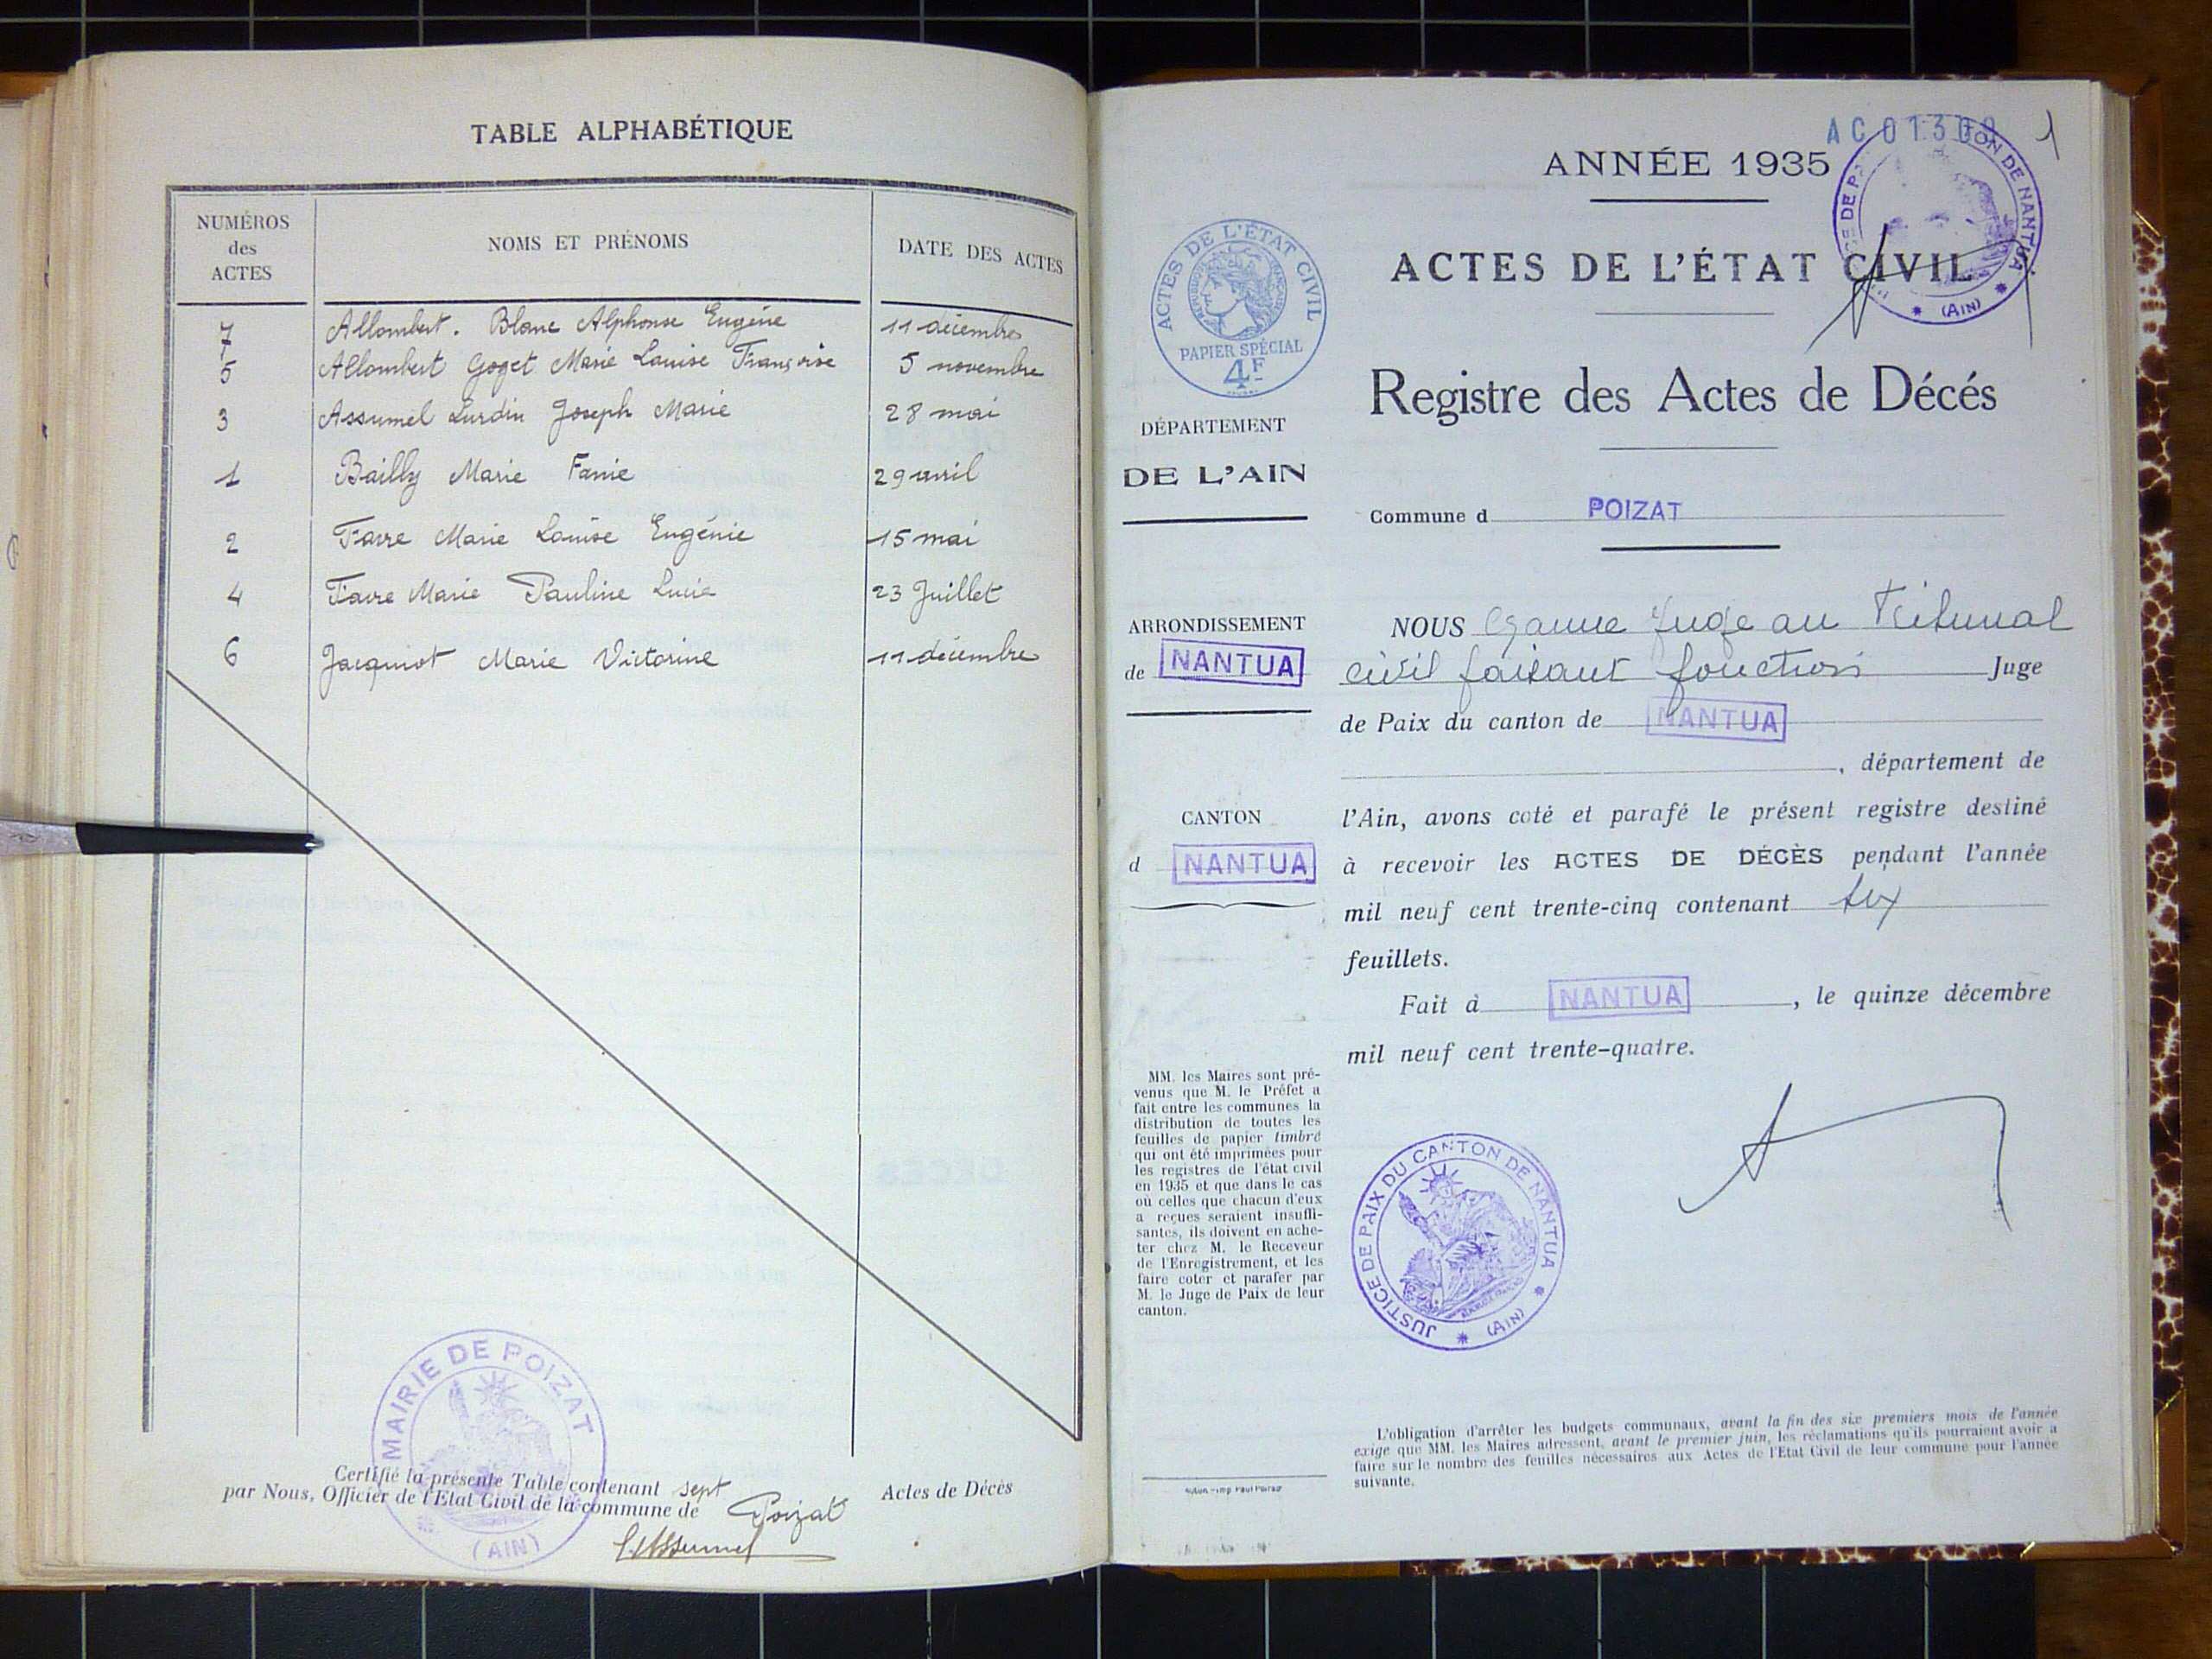 TABLE ALPHABÉTIQUE
NUMÉROS
des
ACTES
NOMS ET PRÉNOMS
DATE DES ACTES
7 Allombert. Blanc Alphonse Eugène 11 décembre
5 Allombert Goget Marie Louise Françoise 5 novembre
3 Assumel Lurdin Joseph Marie 28 mai
1 Bailly Marie Fanie 29 avril
2 Favre Marie Louise Eugénie 15 mai
4 Favre Marie Pauline Lucie 23 Juillet
6 Jacquiot Marie Victorine 11 décembre
MAIRIE DE POIZAT
(AIN)
Certifié la présente Table contenant sept Actes de Décès
par Nous, Officier de l'Etat Civil de la commune de Poizat
AC01300 1
ANNÉE 1935
ON DE NANTUA
(AIN)
ACTES DE L'ÉTAT CIVIL
ACTES DE L'ÉTAT CIVIL
PAPIER SPÉCIAL
4F
Registre des Actes de Décés
DÉPARTEMENT
DE L'AIN
Commune d POIZAT
ARRONDISSEMENT
de NANTUA
CANTON
d NANTUA
NOUS Juge au Tribunal
civil faisant fonction Juge
de Paix du canton de NANTUA
, département de
l'Ain, avons coté et parafé le présent registre destiné
à recevoir les ACTES DE DÉCÈS pendant l'année
mil neuf cent trente-cinq contenant six
feuillets.
Fait à NANTUA, le quinze décembre
mil neuf cent trente-quatre.
MM. les Maires sont pré-
venus que M. le Préfet a
fait entre les communes la
distribution de toutes les
feuilles de papier timbré
qui ont été imprimées pour
les registres de l'état civil
en 1935 et que dans le cas
où celles que chacun d'eux
a reçues seraient insuffi-
santes, ils doivent en ache-
ter chez M. le Receveur
de l'Enregistrement, et les
faire coter et parafer par
M. le Juge de Paix de leur
canton.
JUSTICE DE PAIX DU CANTON DE NANTUA
(AIN)
L'obligation d'arrêter les budgets communaux, avant la fin des six premiers mois de l'année
exige que MM. les Maires adressent, avant le premier juin, les réclamations qu'ils pourraient avoir a
faire sur le nombre des feuilles nécessaires aux Actes de l'Etat Civil de leur commune pour l'année
suivante.